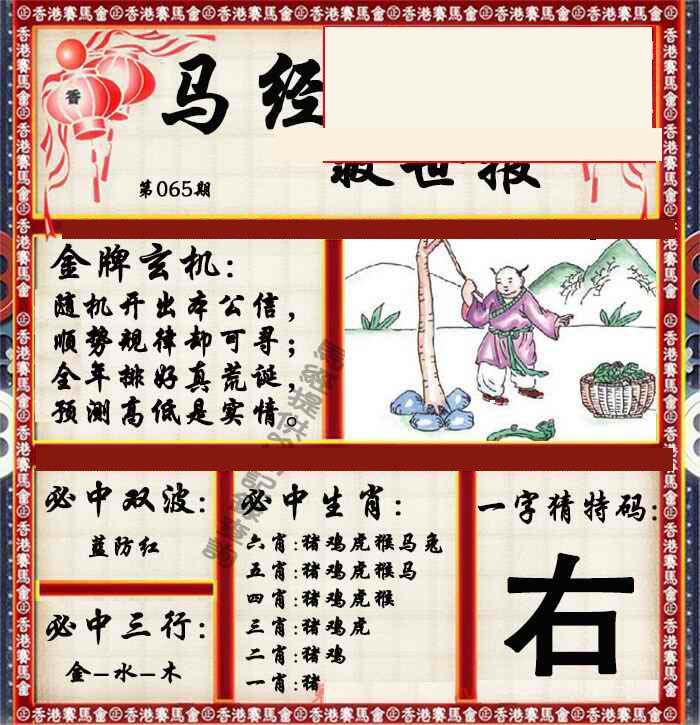 香
马经
救世报
第065期
金牌玄机:
随机开出本公信，
顺势规律却可寻；
全年排好真荒诞，
预测高低是实情。
必中双波:
蓝防红
必中三行:
金–水–木
必中生肖:
六肖:猪鸡虎猴马兔
五肖:猪鸡虎猴马
四肖:猪鸡虎猴
三肖:猪鸡虎
二肖:猪鸡
一肖:猪
一字猜特码:
右
香港賽馬會